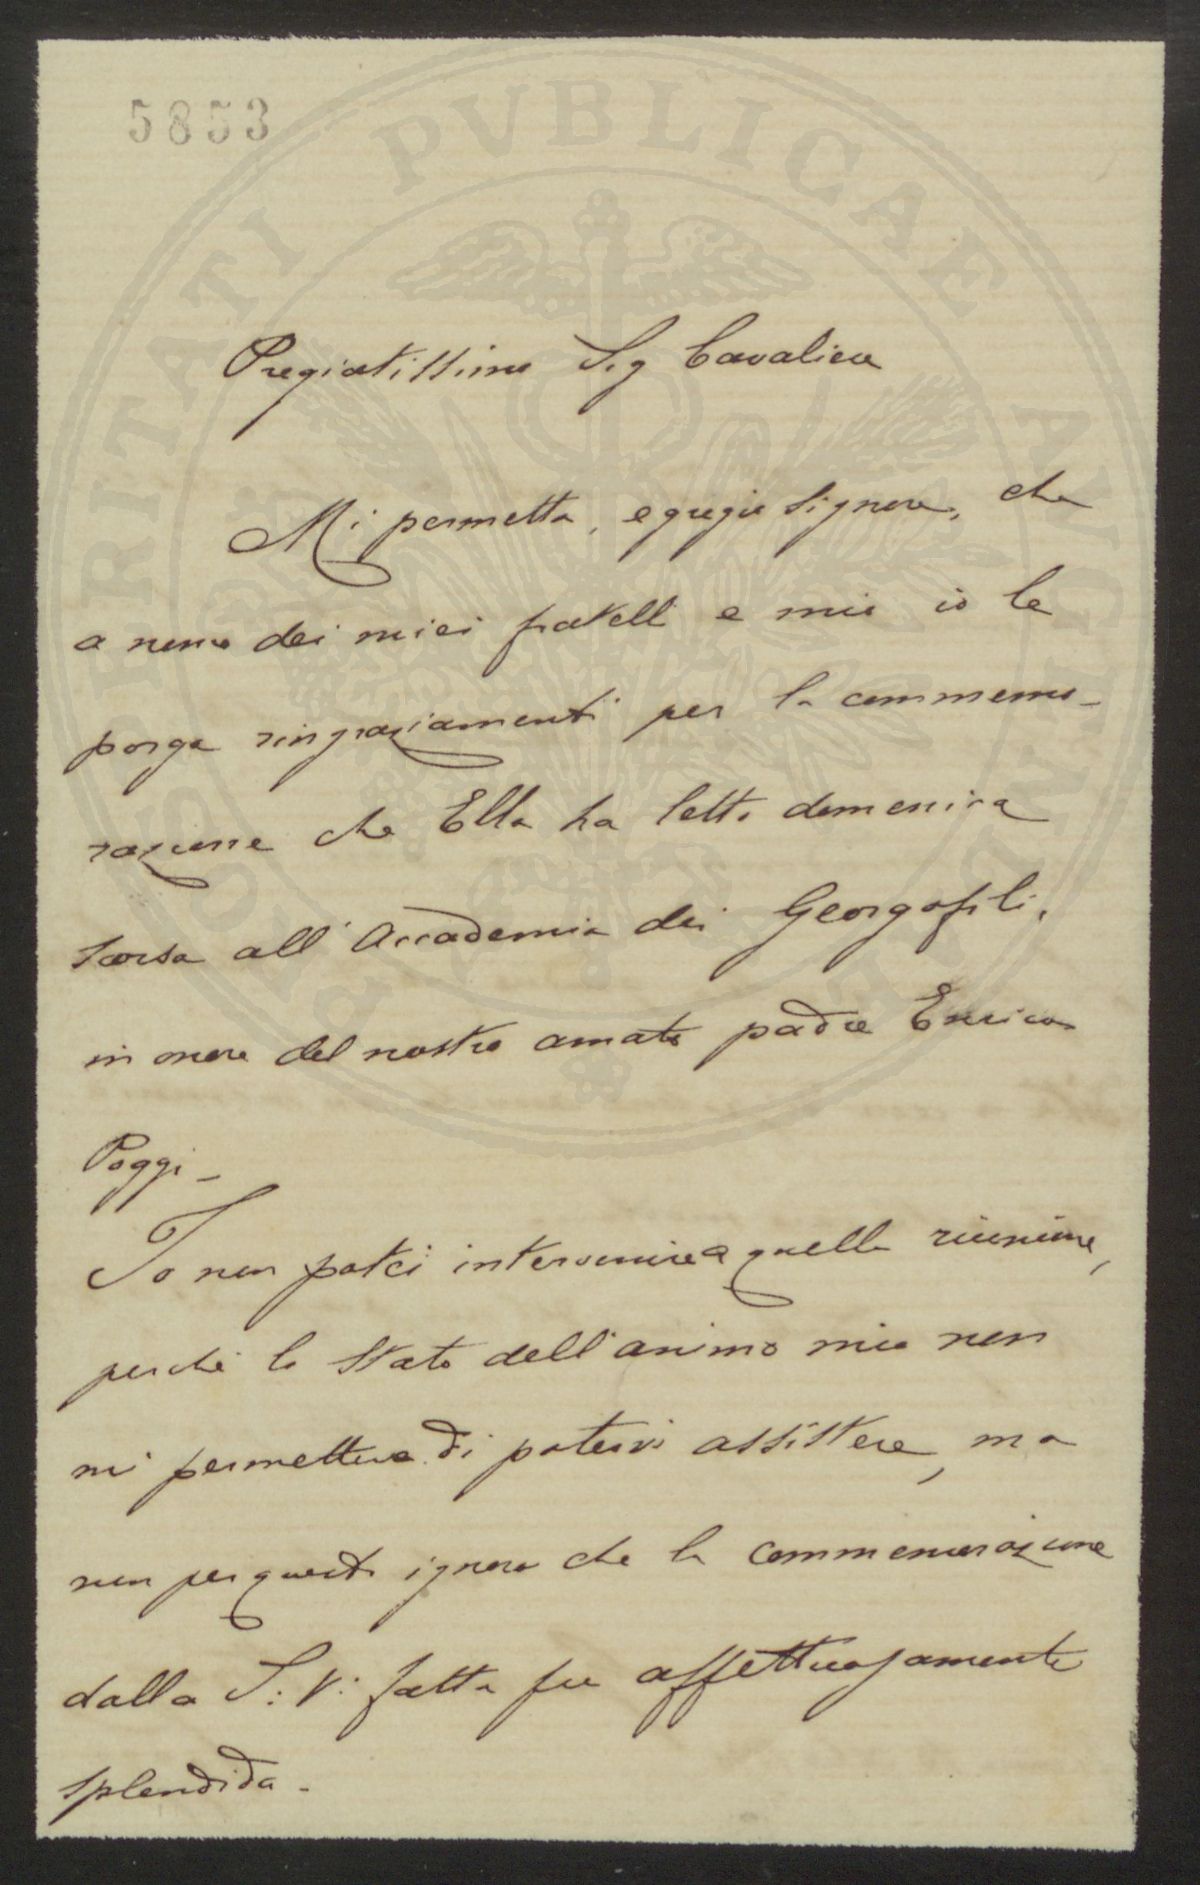 5853
PROSPERITATI PVBLICAE AVGENDAE
Pregiatissimo Sig Cavaliere
Mi permetta, egregio Signore, che
a nome dei miei fratelli e mio io le
porga ringraziamenti per la commemo-
razione che Ella ha letto domenica
scorsa all'Accademia dei Georgofili,
in onore del nostro amato padre Enrico
Poggi_
Io non potei intervenire a quella riunione,
perché lo stato dell'animo mio non
mi permetteva di potervi assistere, ma
non per questo ignoro che la commemorazione
dalla S: V: fatta fu affettuosamente
splendida -